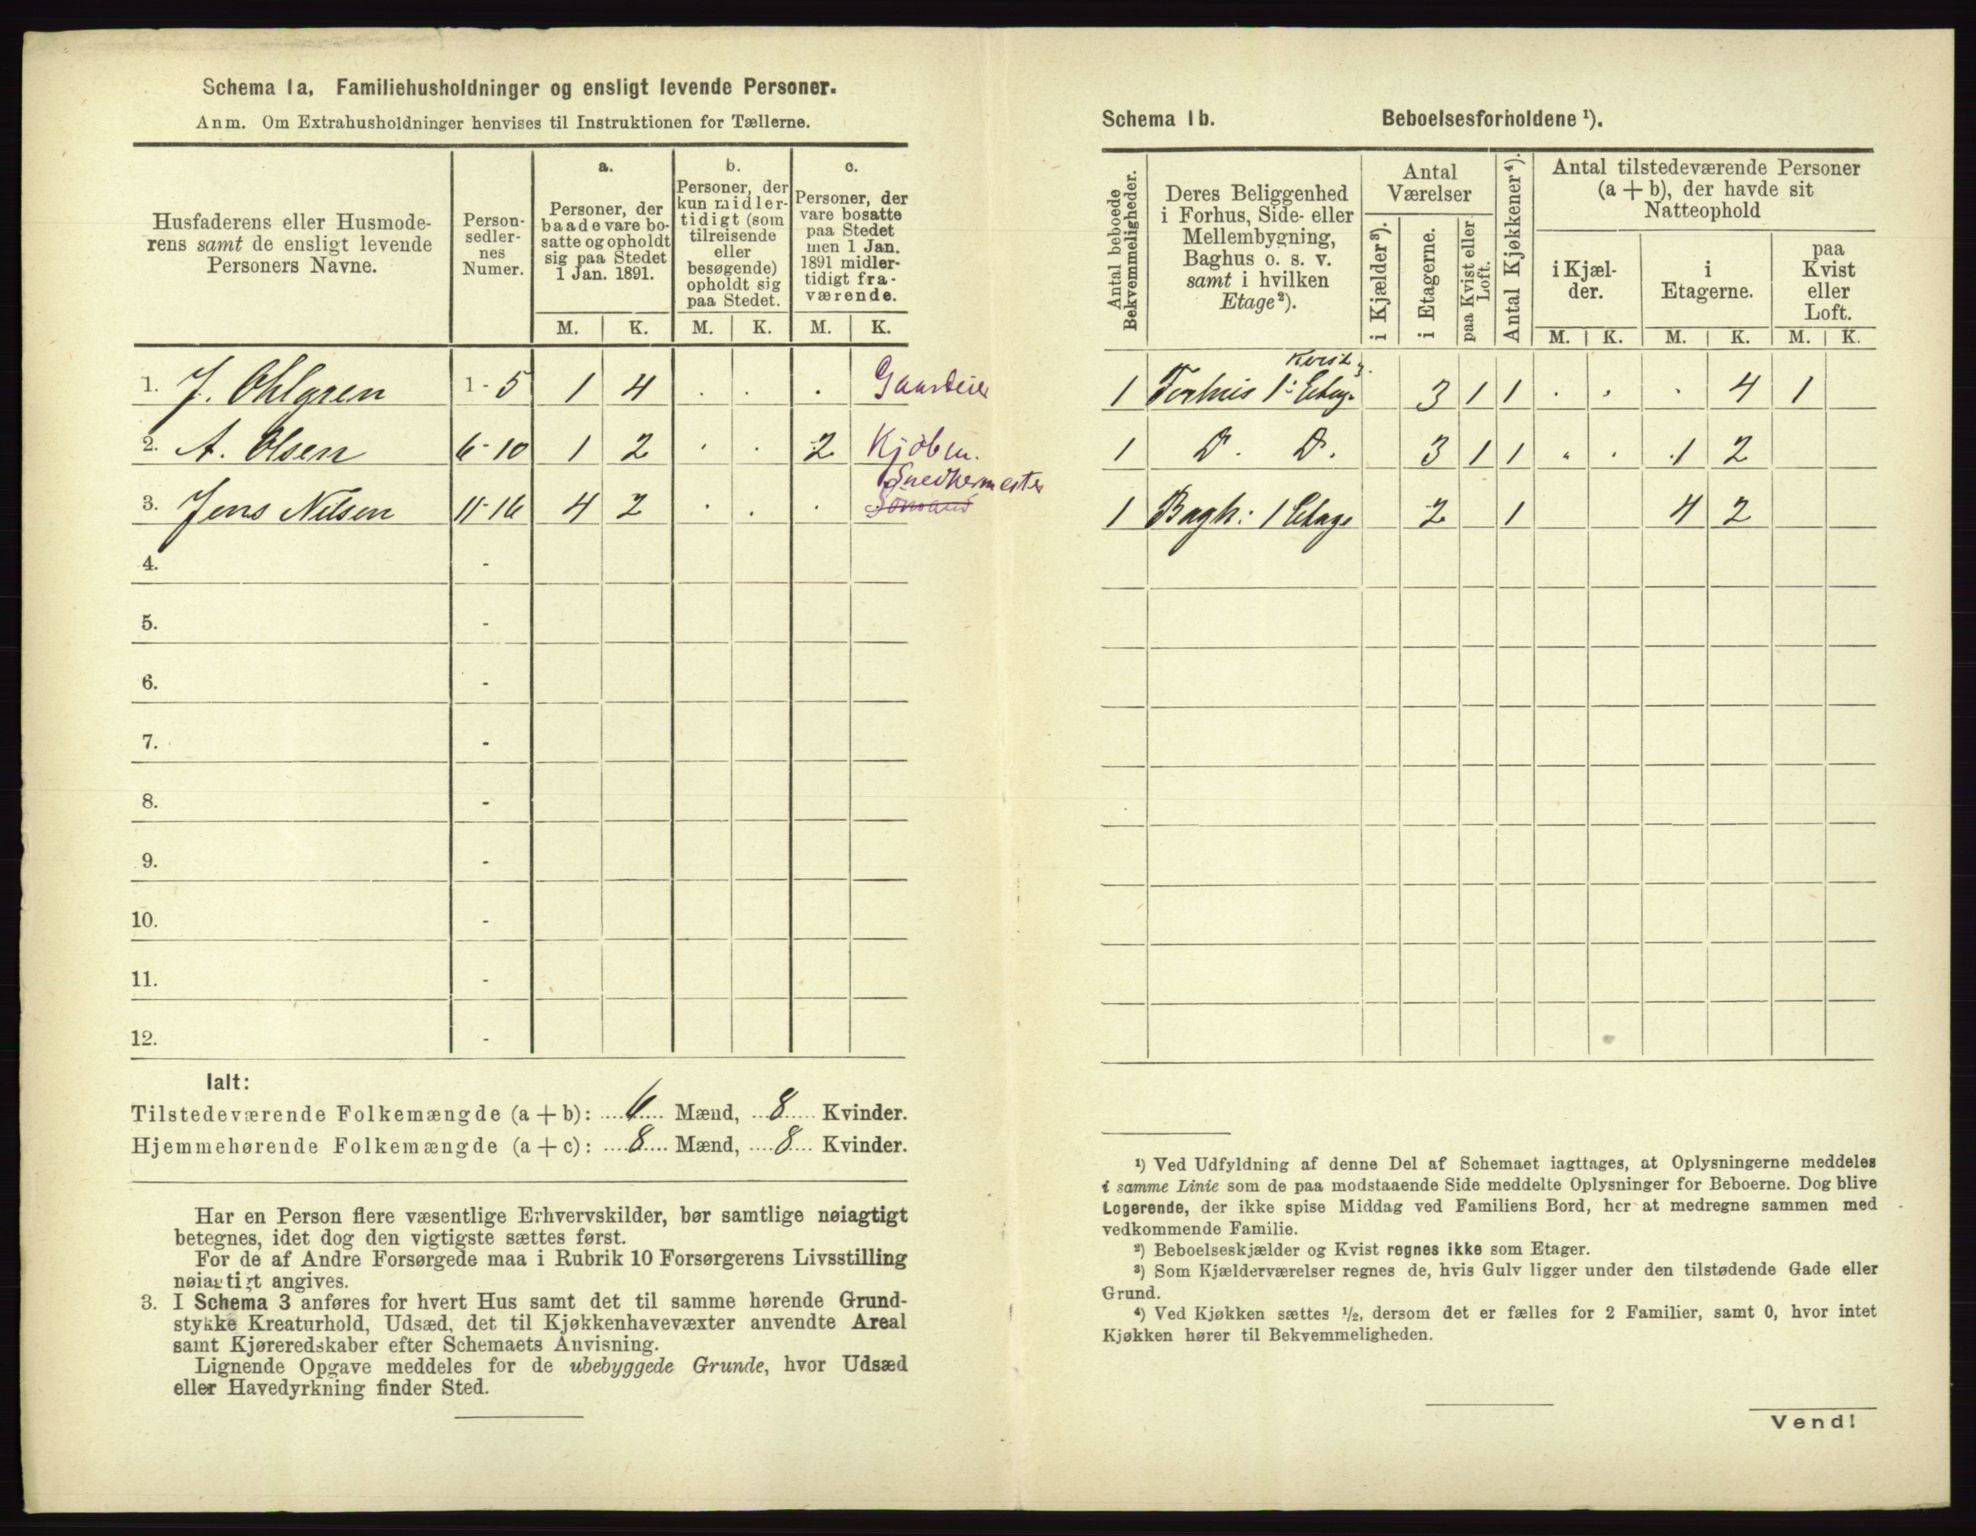 Schema 1a. Familiehusholdninger og ensligt levende Personer.
Anm. Om Extrahusholdninger henvises til Instruktionen for Tællerne.
Husfaderens eller Husmode-
rens samt de ensligt levende
Personers Navne.
Person-
sedler-
nes
Numer.
a.
Personer, der
baade vare bo-
satte og opholdt
sig paa Stedet
1 Jan. 1891.
b.
Personer, der
kun midler-
tidigt (som
tilreisende
eller
besøgende)
opholdt sig
paa Stedet.
c.
Personer, der
vare bosatte
paa Stedet
men 1 Jan.
1891 midler-
tidigt fra-
værende.
M. K. M. K. M. K.
1. J. Ohlgren 1-5 1 4 . . . Gaardeier
2. A. Olsen 6-10 1 2 . . 2 Kjøbm.
Snedkermester
3. Jens Nilsen 11-16 4 2 . . .
4. -
5. -
6. -
7. -
8. -
9. -
10. -
11. -
12. -
Ialt:
Tilstedeværende Folkemængde (a+b): 6 Mænd, 8 Kvinder.
Hjemmehørende Folkemængde (a+c): 8 Mænd, 8 Kvinder.
Har en Person flere væsentlige Erhvervskilder, bør samtlige nøiagtigt
betegnes, idet dog den vigtigste sættes først.
For de af Andre Forsørgede maa i Rubrik 10 Forsørgerens Livsstilling
nøiagtigt angives.
3. I Schema 3 anføres for hvert Hus samt det til samme hørende Grund-
stykke Kreaturhold, Udsæd, det til Kjøkkenhavevæxter anvendte Areal
samt Kjøreredskaber efter Schemaets Anvisning.
Lignende Opgave meddeles for de ubebyggede Grunde, hvor Udsæd
eller Havedyrkning finder Sted.
Schema 1b. Beboelsesforholdene ¹).
Antal beboede
Bekvemmeligheder.
Deres Beliggenhed
i Forhus, Side- eller
Mellembygning,
Baghus o. s. v.
samt i hvilken
Etage²).
Antal
Værelser
i Kjælder³).
i Etagerne.
paa Kvist eller
Loft.
Antal Kjøkkener⁴).
Antal tilstedeværende Personer
(a + b), der havde sit
Natteophold
i Kjæl-
der.
i
Etagerne.
paa
Kvist
eller
Loft.
M. K. M. K. M. K.
Kvist
1 Forhuis 1ˢ Etag. 3 1 1 . . . 4 1
1 D. D. 3 1 1 . . 1 2
1 Bagh: 1 Etage 2 1 4 2
¹) Ved Udfyldning af denne Del af Schemaet iagttages, at Oplysningerne meddeles
i samme Linie som de paa modstaaende Side meddelte Oplysninger for Beboerne. Dog blive
Logerende, der ikke spise Middag ved Familiens Bord, her at medregne sammen med
vedkommende Familie.
²) Beboelseskjælder og Kvist regnes ikke som Etager.
³) Som Kjælderværelser regnes de, hvis Gulv ligger under den tilstødende Gade eller
Grund.
⁴) Ved Kjøkken sættes ½, dersom det er fælles for 2 Familier, samt 0, hvor intet
Kjøkken hører til Bekvemmeligheden.
Vend!